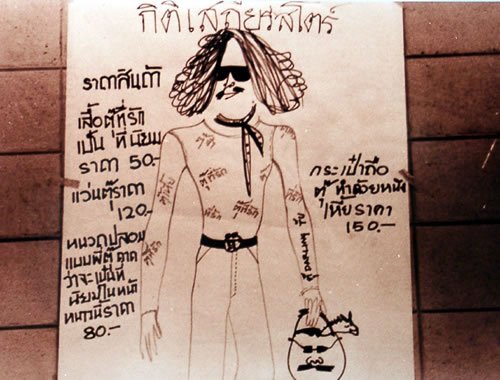 กิติเสถียรสโตร์
ราคาสินค้า
เสื้อตู๊ที่รัก
เป็น ที่นิยม
ราคา 50.-
แว่นตู๊ราคา
120.-
หนวดปลอม
แบบพี่ตู๊ คาด
ว่าจะเป็นที่
นิยมในหน้า
หนาวนี้ราคา
80.-
กระเป๋าถือ
ตู๊ ทำด้วยหนัง
เหี้ยราคา
150.-
ตู๊ที่รัก
ตู๊ที่รัก
ตู๊ที่รัก